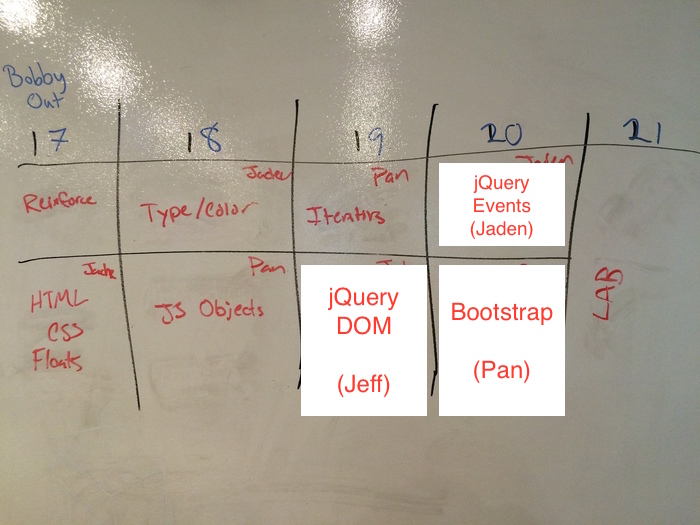 Bobby
Out
17
18
19
20
21
Reinforce
Jaden
Type/Color
Pan
Iterators
Jaden
jQuery
Events
(Jaden)
HTML
CSS
Floats
Pan
JS Objects
jQuery
DOM
(Jeff)
Bootstrap
(Pan)
LAB